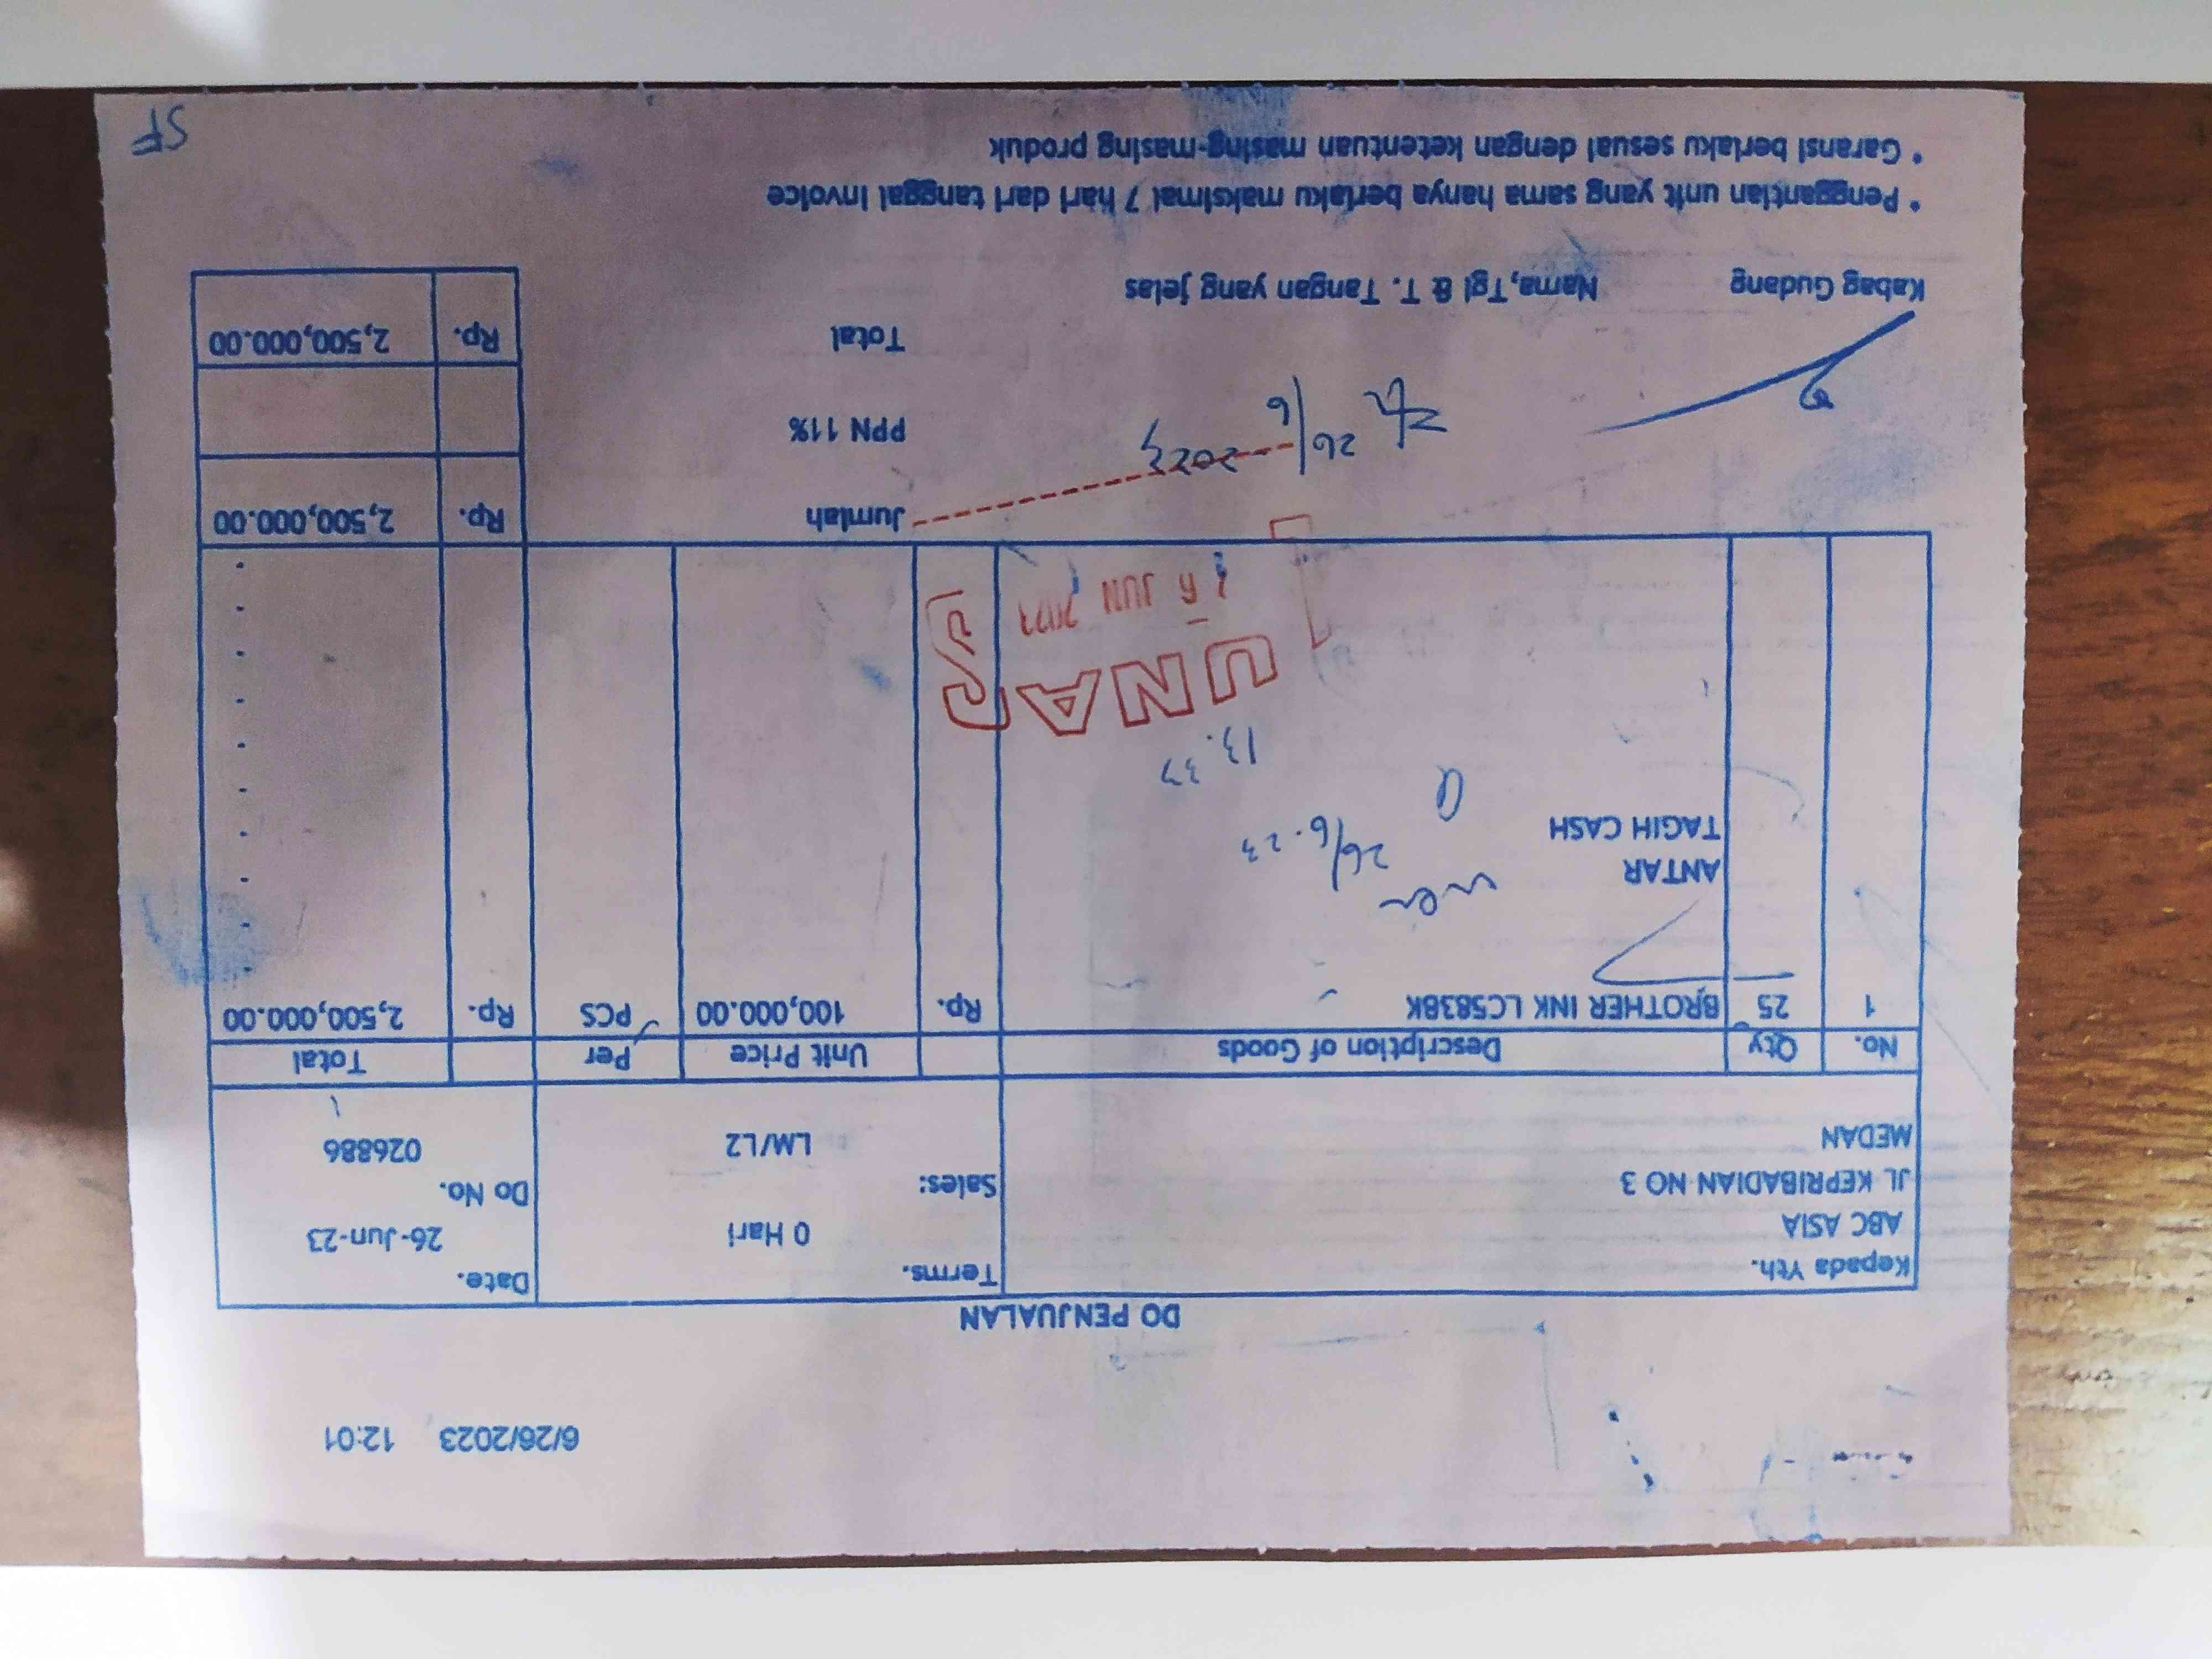 6/26/2023 12:01
DO PENJUALAN
Kepada Yth.
ABC ASIA
JL KEPRIBADIAN NO 3
MEDAN
Terms. 0 Hari
Sales: LM/L2
Date. 26-Jun-23
Do No. 026886
No. Qty Description of Goods Unit Price Per Total
1 25 BROTHER INK LC583BK Rp. 100,000.00 PCS Rp. 2,500,000.00
ANTAR
TAGIH CASH
26/6-23
13.37
UNAS
JUN
Jumlah Rp. 2,500,000.00
PPN 11%
Total Rp. 2,500,000.00
26/6 2023
Kabag Gudang Nama,Tgl & T. Tangan yang jelas
* Penggantian unit yang sama hanya berlaku maksimal 7 hari dari tanggal invoice
* Garansi berlaku sesuai dengan ketentuan masing-masing produk
SF